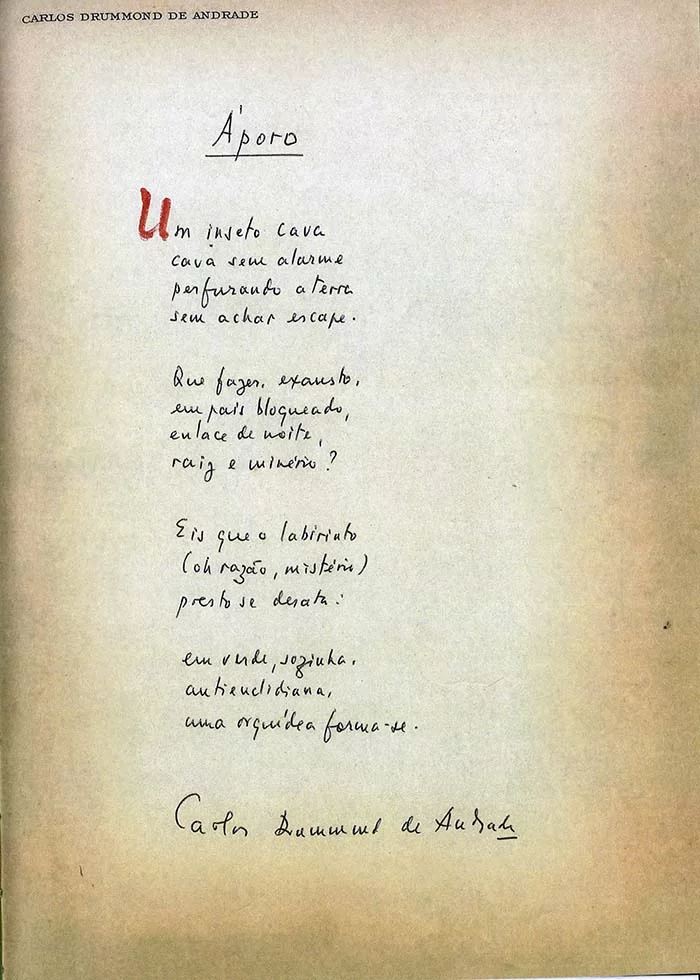 CARLOS DRUMMOND DE ANDRADE
Áporo
Um inseto cava
cava sem alarme
perfurando a terra
sem achar escape.
Que fazer, exausto,
em país bloqueado,
enlace de noite,
raiz e minério?
Eis que o labirinto
(oh razão, mistério)
presto se desata:
em verde, sozinha,
antieuclidiana,
uma orquídea forma-se.
Carlos Drummond de Andrade